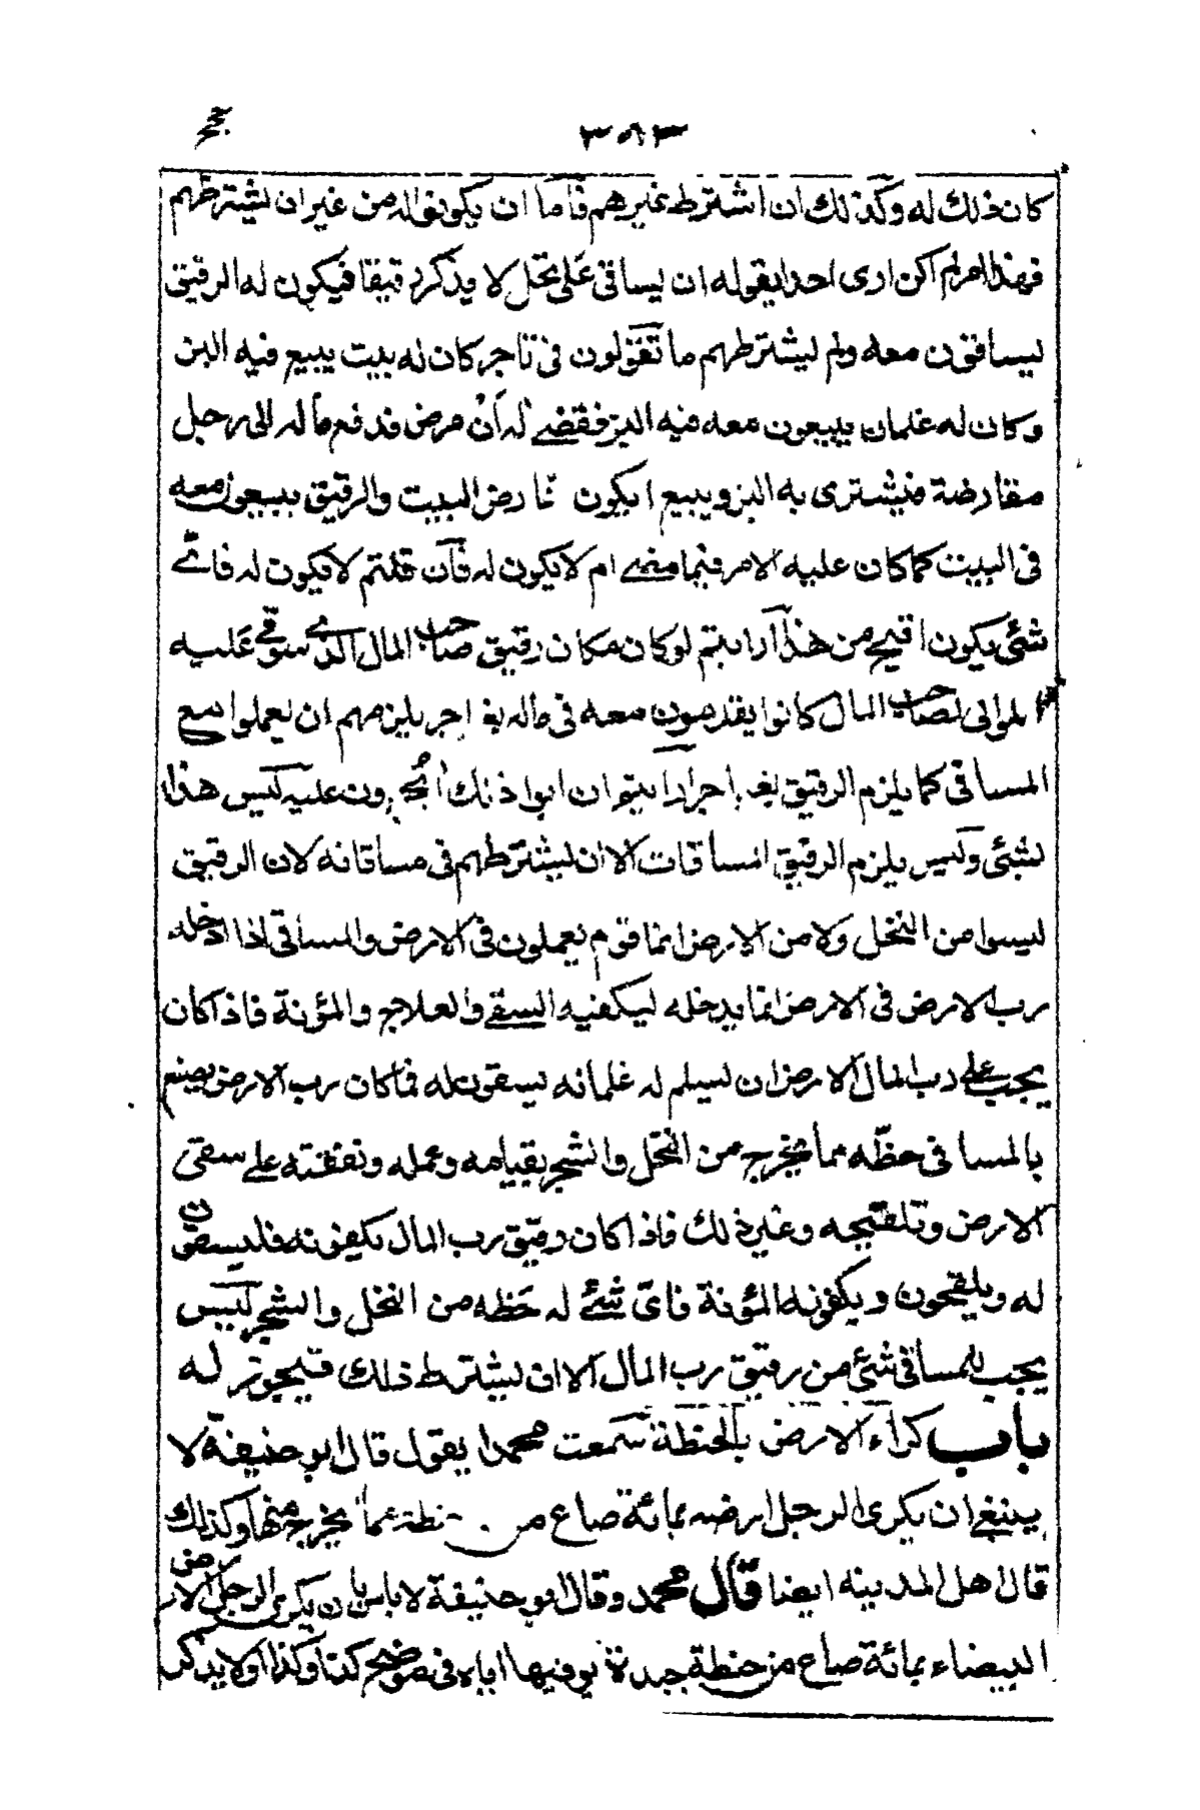 ٣٥٣
كان ذلك له وكذلك ان اشترط غيرهم فاما ان يكونوا له من غير ان يشترطهم
فهذا امر لم اكن ارى احدا يقوله ان يساقى على نخل لا يذكر رقيقا فيكون له الرقيق
يساقون معه ولم يشترطهم ما تقولون فى تاجر كان له بيت يبيع فيه البز
وكان له غلمان يبيعون معه فيه البز فقضى له ان مرض فدفع ماله الى رجل
مقارضة فيشترى به البز ويبيع ايكون رض البيت والرقيق يبيعون معه
فى البيت كما كان عليه الامر فيما مضى ام لا يكون له فان قلتم لا يكون له فاى
شئى يكون اقبح من هذا ارايتم لو كان مكان رقيق صاحب المال الذى سوقى عليه
موالى لصاحب المال كانوا يقدمون معه فى ماله بغير اجر يلزمهم ان يعملوا مع
المساقى كما يلزم الرقيق بغير اجر ارايتم ان ابوا ذلك أيجبرون عليه ليس هذا
بشئى وليس يلزم الرقيق المساقات الا ان يشترطهم فى مساقاته لان الرقيق
ليسوا من النخل ولا من الارض انما قوم يعملون فى الارض والمساقى اذا ادخله
رب الارض فى الارض انما يدخله ليكفيه السقى والعلاج والمؤنة فاذا كان
يجب على رب المال الارض ان يسلم له غلمانه يسقون له فما كان رب الارض يصنع
بالمساقى حظه مما يخرج من النخل والشجر بقيامه وعمله ونفقته على سقى
الارض وتلقيحه وغير ذلك فاذا كان رقيق رب المال يكفونه فليسقون
له ويلقحون ويكفونه المؤنة فاى شئى له حظه من النخل والشجر ليس
يجب للمساقى شئى من رقيق رب المال الا ان يشترط ذلك فيجوز له
باب كراء الارض بالحنطة سمعت محمدا يقول قال ابو حنيفة لا
ينبغى ان يكرى الرجل ارضه بمائة صاع من حنطة مما يخرج منها وكذلك
قال اهل المدينه ايضا قال محمد وقال ابو حنيفة لا باس بان يكرى الرجل الارض
البيضاء بمائة صاع من حنطة جيدة يوفيها اياه فى موضع كذا وكذا اولا يذكر